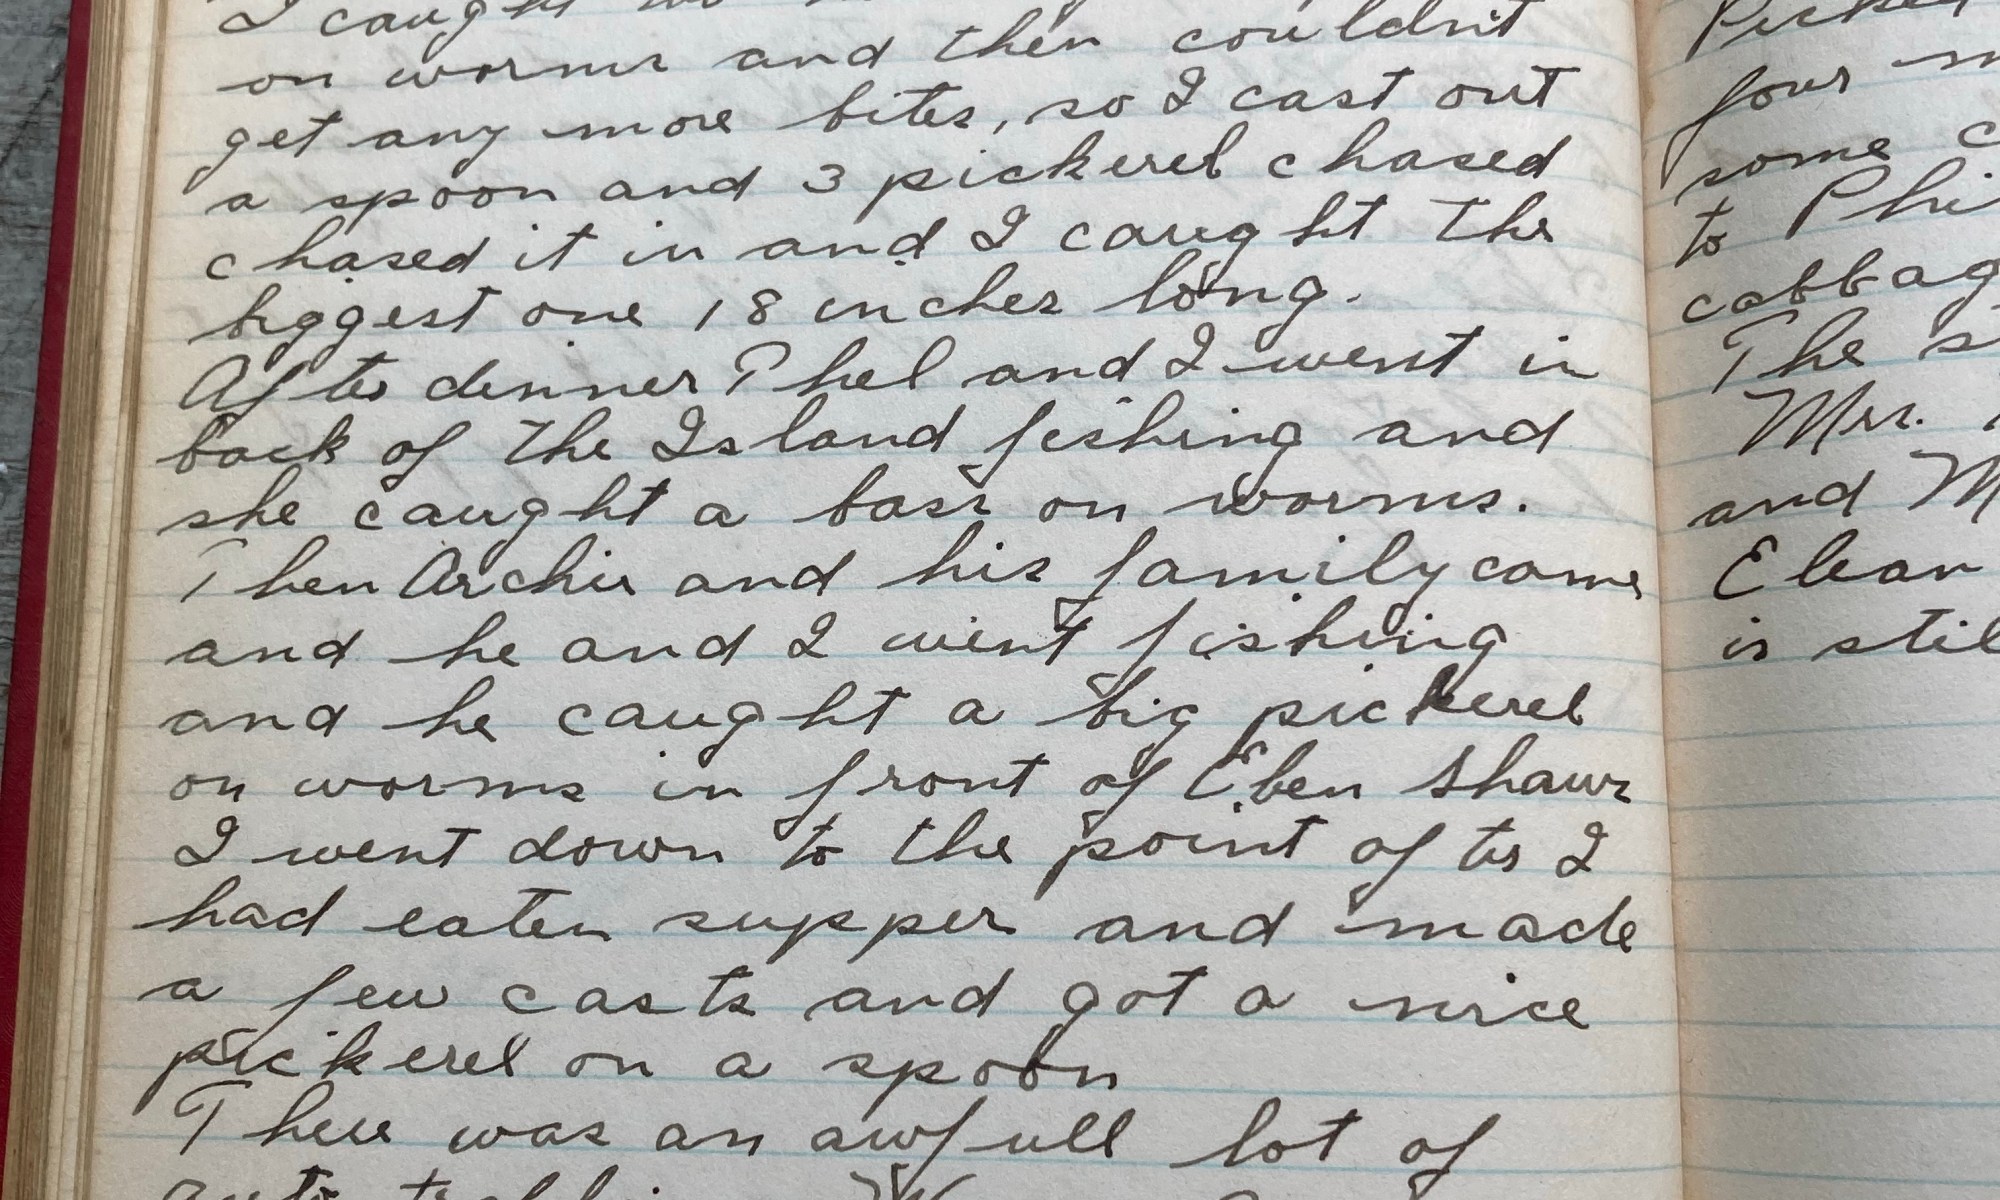 I caught
on worms and then couldnt
get any more bites, so I cast out
a spoon and 3 pickerel chased
chased it in and I caught the
biggest one 18 inches long.
After dinner Phel and I went in
back of the Island fishing and
she caught a bass on worms.
Then Archie and his family came
and he and I went fishing
and he caught a big pickerel
on worms in front of Eben Shaws
I went down to the point after I
had eaten supper and made
a few casts and got a nice
pickerel on a spoon
There was an awfull lot of
auto
Picked
four
some
to Phi
cabbag
The s
Mrs.
and M
Elean
is stil